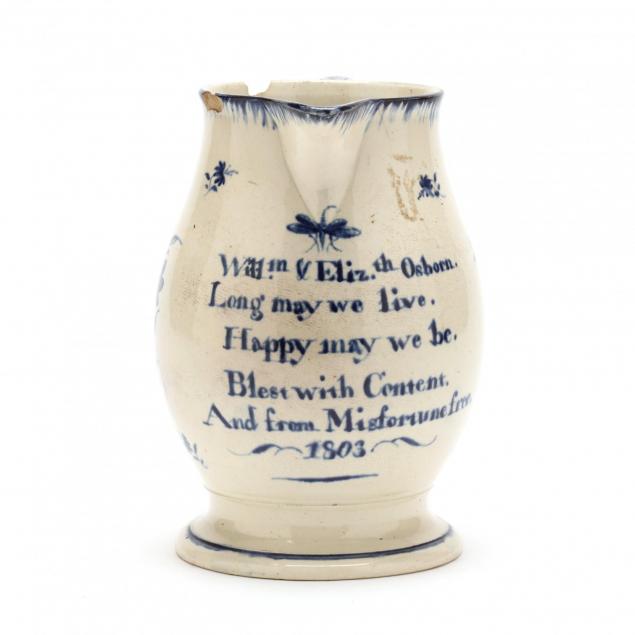 Will.m & Eliz.th Osborn.
Long may we live.
Happy may we be.
Blest with Content.
And from Misfortune free.
1803